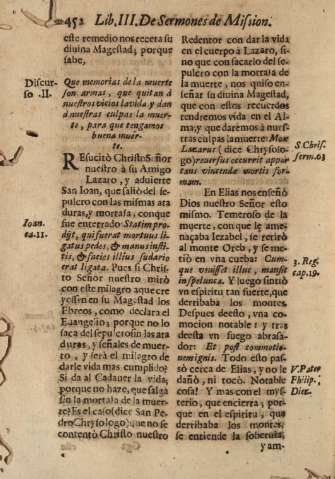 452 Lib. III. De Sermones de Mission.
este remedio nos receta su
divina Magestad; porque
sabe,
Discur-
so .II.
Que memorias de la muerte
son armas, que quitan à
nuestros vicios la vida y dan
à nuestras culpas la muer-
te, para que tengamos
buena muer-
te.
REsucitò Christo Señor
nuestro à su Amigo
Lazaro, y advierte
San Ioan, que saliò del se-
pulcro con las mismas ata
duras, y mortaja, conque
fue enterrado Statim pro-
dijt, qui fuerat mortuus li-
gatus pedes, & manus insti-
tis, & facies illius sudario
erat ligata. Pues si Christo
Señor nuestro mirò
con este milagro aquecre
yessen en su Magestad los
Ebreos, como declara el
Euangelio; porque no lo
saca del sepulcro sin las ata
duras, y señales de muer-
to, y serà el milagro de
darle vida mas cumplido?
Si da al Cadauer la vida,
porque no haze, que salga
sin la mortaja de la muer-
te? Es el caso (dize San Pe-
dro Chrysologo) que no se
contentò Christo nuestro
Ioan.
ca. 11.
Redentor con dar la vida
en el cuerpo à Lazaro, si-
no que con sacarlo del se-
pulcro con la mortaja de
la muerte, nos quiso en-
señar su divina Magestad,
que con estos recuerdos
tendremos vida en el Al-
ma, y que daremos à nues-
tras culpas la muerte:
(dize Chrysolo-
go) recursus occurrit appor-
tans vincenda mortis for-
mam.
S. Chris.
serm. 63
En Elias nos enseñò
Dios nuestro Señor esto
mismo. Temeroso de la
muerte, con que le ame-
naçaba Iezabel, se retirò
al monte Oreb, y se me-
tiò en vna cueba: Cum-
que venisset illuc, mansit
in spelunca. Y luego sintiò
vn espiritu tan fuerte, que
derribaba los montes.
Despues deesto, vna co-
mocion notable: y tras
deesta vn fuego abrasa-
dor: Et post commotio-
nem ignis. Todo esto pas-
sò cerca de Elias, y no le
dañò, ni tocò. Notable
cosa! Y mas con el mys-
terio, que encierra; por-
que en el espiritu, que
derribaba los montes,
se entiende la sobervia,
y am-
3. Reg.
cap. 19.
V. Pater
Philip.
Diez.